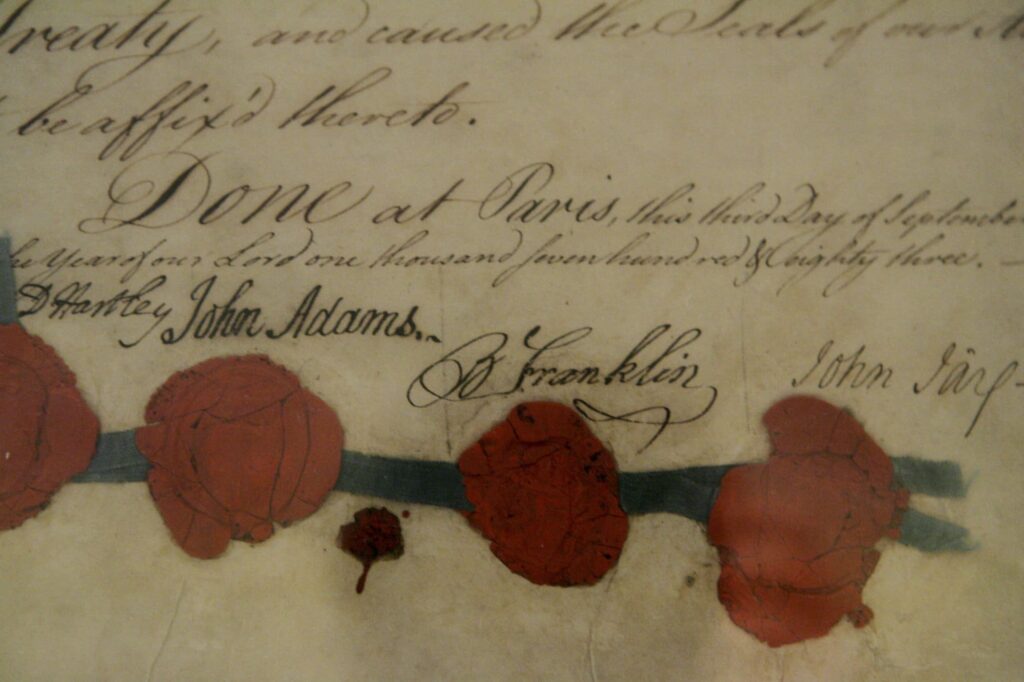 Treaty, and caused the Seals of our
be affix'd thereto.
Done at Paris, this third Day of September
Year of our Lord one thousand seven hundred & eighty three.
D Hartley John Adams.
B Franklin John Jay